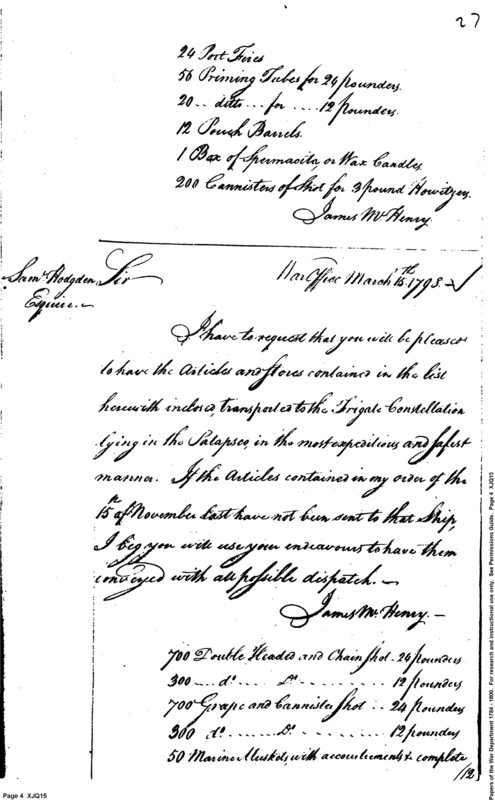 27
24 Port Fires
56 Priming Tubes for 24 pounders.
20 .. ditto ... for ... 12 pounders.
12 Pouch Barrels.
1 Box of Spermacita, or Wax Candles
200 Cannisters of Shot for 3 pound Howitzers.
James McHenry.
War Office March 15th 1798.
Saml. Hodgden Esquire.
Sir
I have to request that you will be pleased
to have the Articles and Stores contained in the list
herewith inclosed, transported to the Frigate Constellation
lying in the Patapsco, in the most expeditious and safest
manner. If the Articles contained in my order of the
15th of November last have not been sent to that Ship,
I beg you will use your endeavours to have them
conveyed with all possible dispatch.
James McHenry.
700 Double Headed and Chain Shot . 24 pounders
300 ... do. Do. ........ 12 pounders
700 Grape and Cannister Shot .. 24 pounders
300 do. .... Do. ........ 12 pounders
50 Marine Muskets, with accoutrements complete
/12
Page 4 XJQ15
Papers of the War Department 1784 - 1800. For research and instructional use only. See Permissions Guide. Page 4 XJQ15